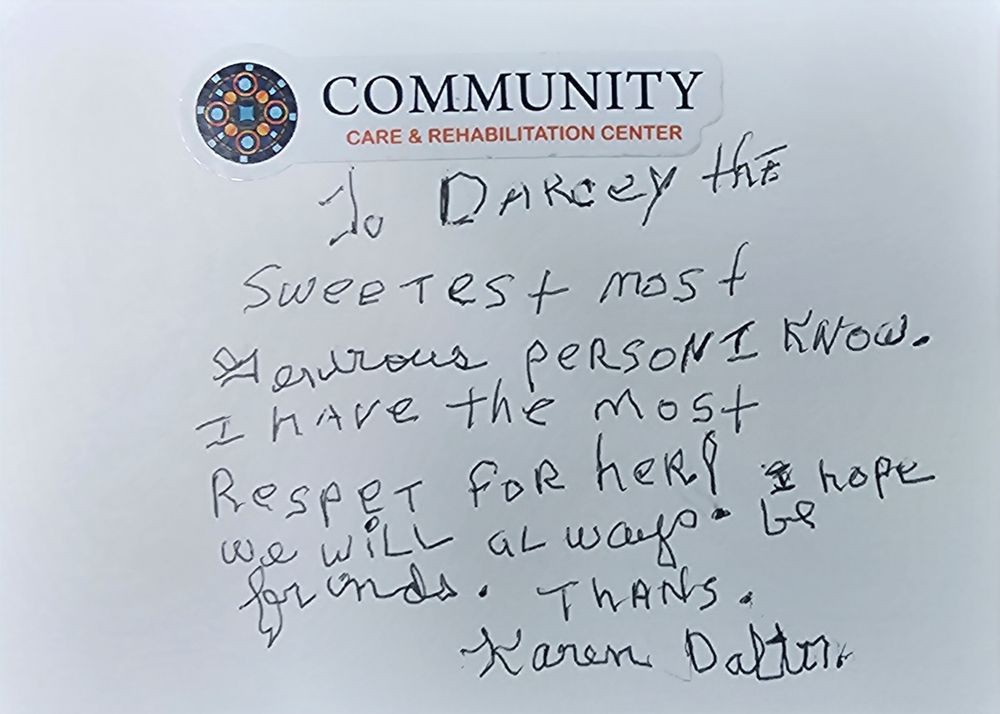 COMMUNITY
CARE & REHABILITATION CENTER
To DARCEY the
Sweetest most
generous PERSON I KNOW.
I HAVE the most
RESPET FOR her! I hope
we will always be
friends. THANS.
Karen Dalton